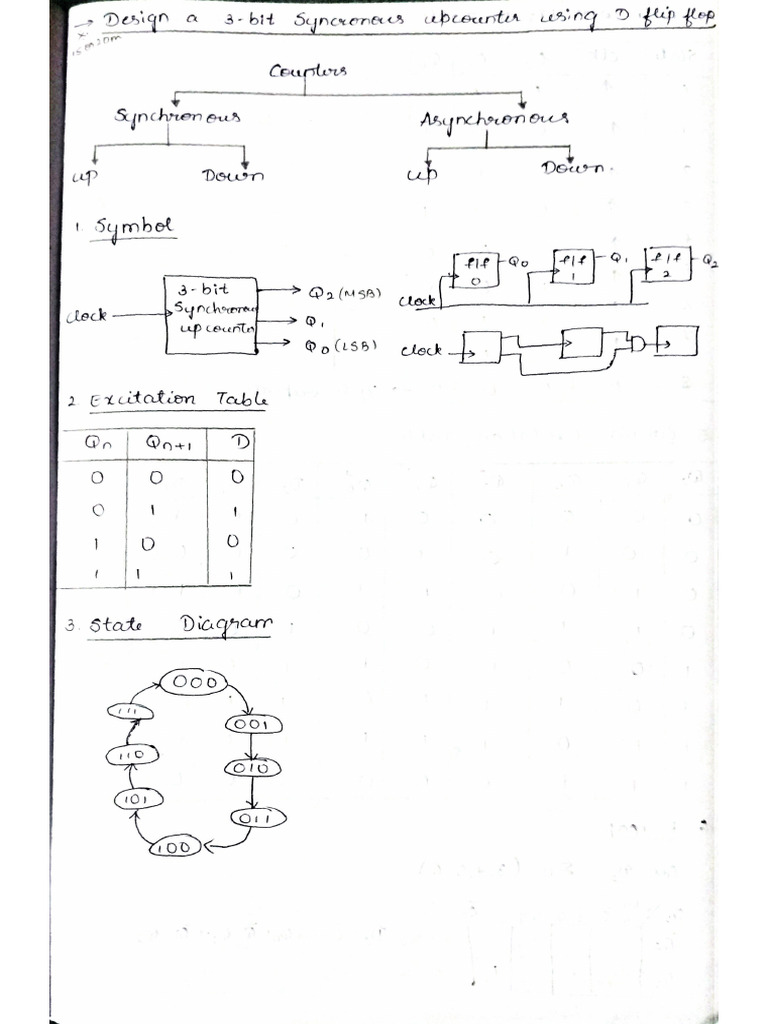 → Design a 3-bit Syncronous upcounter using D flip flop
Counters
Synchronous Asynchronous
up Down up Down.
1. Symbol
clock
3-bit
Synchronous
up counter
Q2 (MSB)
Q1
Q0 (LSB)
f/f
0
Q0
f/f
1
Q1
f/f
2
Q2
clock
clock
2 Excitation Table
Qn Qn+1 D
0 0 0
0 1 1
1 0 0
1 1 1
3. State Diagram
000
111
001
110
010
101
011
100